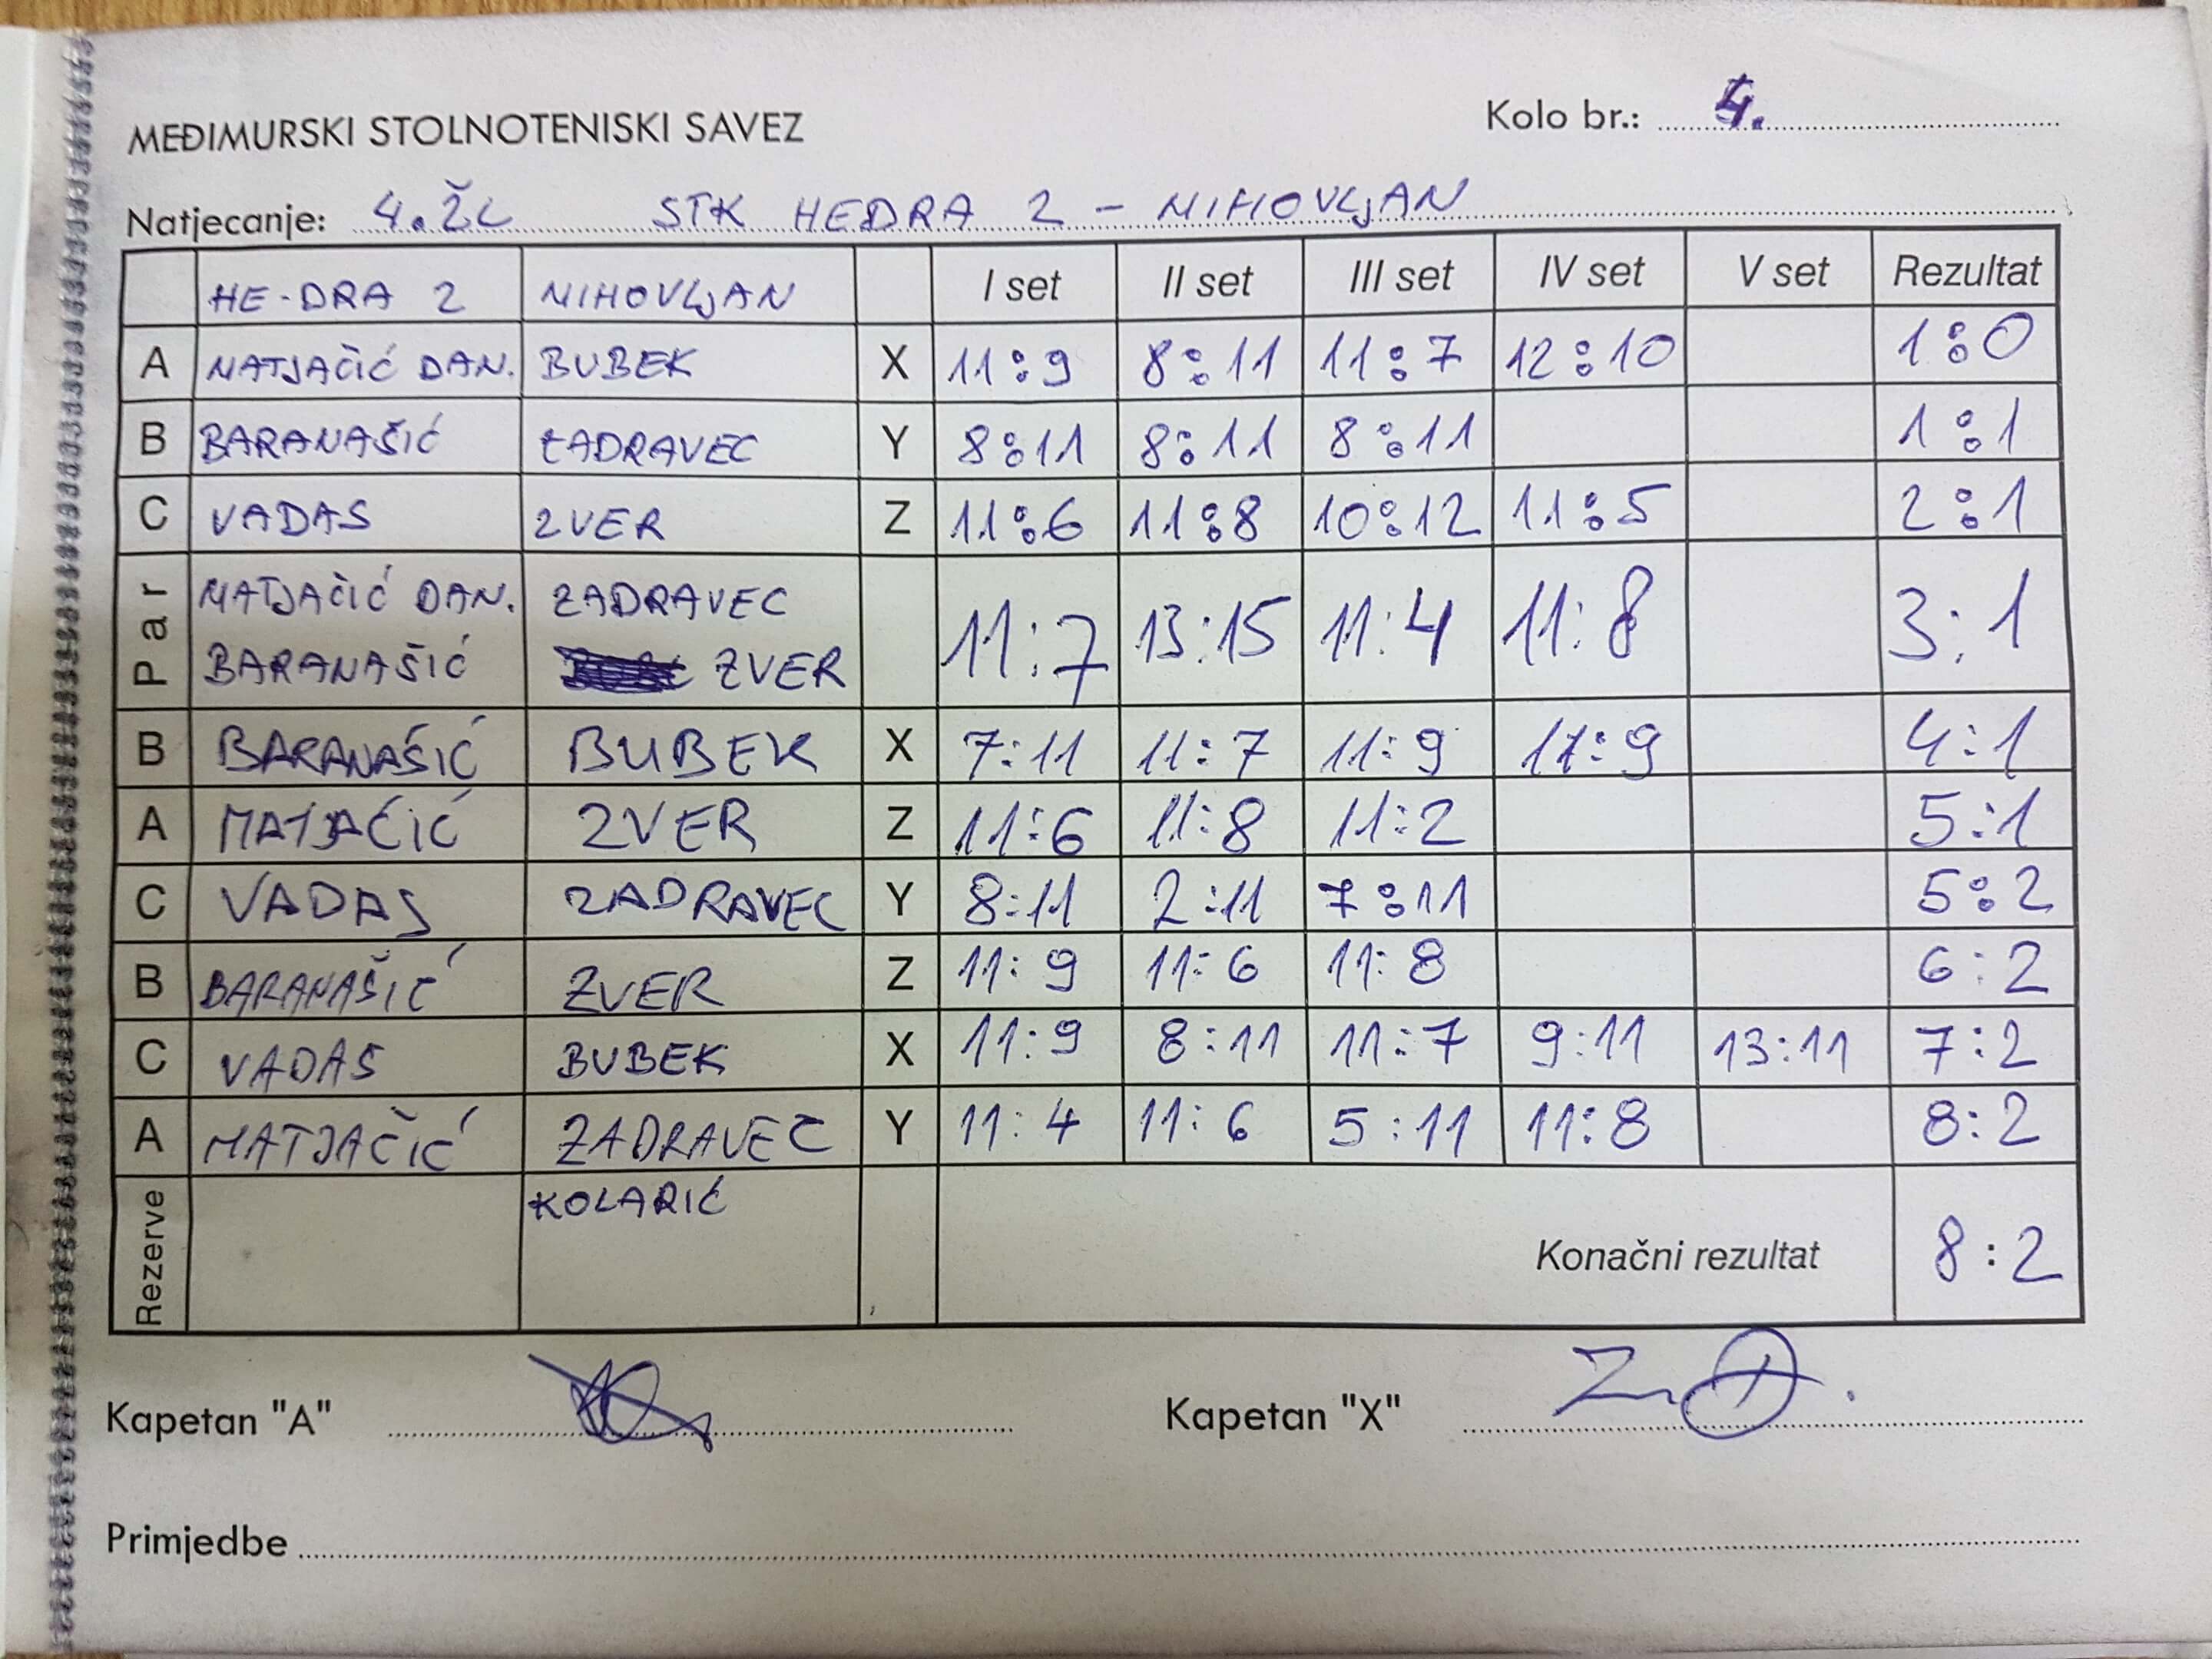 MEĐIMURSKI STOLNOTENISKI SAVEZ
Kolo br.: 4.
Natjecanje: 4.ŽL STK HEDRA 2 - MIHOVLJAN
HE-DRA 2 MIHOVLJAN I set II set III set IV set V set Rezultat
A MATJAČIĆ DAN. BUBEK X 11:9 8:11 11:7 12:10 1:0
B BARANAŠIĆ ZADRAVEC Y 8:11 8:11 8:11 1:1
C VADAS ZVER Z 11:6 11:8 10:12 11:5 2:1
Par MATJAČIĆ DAN. ZADRAVEC 11:7 13:15 11:4 11:8 3:1
BARANAŠIĆ ZVER
B BARANAŠIĆ BUBEK X 7:11 11:7 11:9 11:9 4:1
A MATJAČIĆ ZVER Z 11:6 11:8 11:2 5:1
C VADAS ZADRAVEC Y 8:11 2:11 7:11 5:2
B BARANAŠIĆ ZVER Z 11:9 11:6 11:8 6:2
C VADAS BUBEK X 11:9 8:11 11:7 9:11 13:11 7:2
A MATJAČIĆ ZADRAVEC Y 11:4 11:6 5:11 11:8 8:2
Rezerve KOLARIĆ
Konačni rezultat 8:2
Kapetan "A" Kapetan "X"
Primjedbe